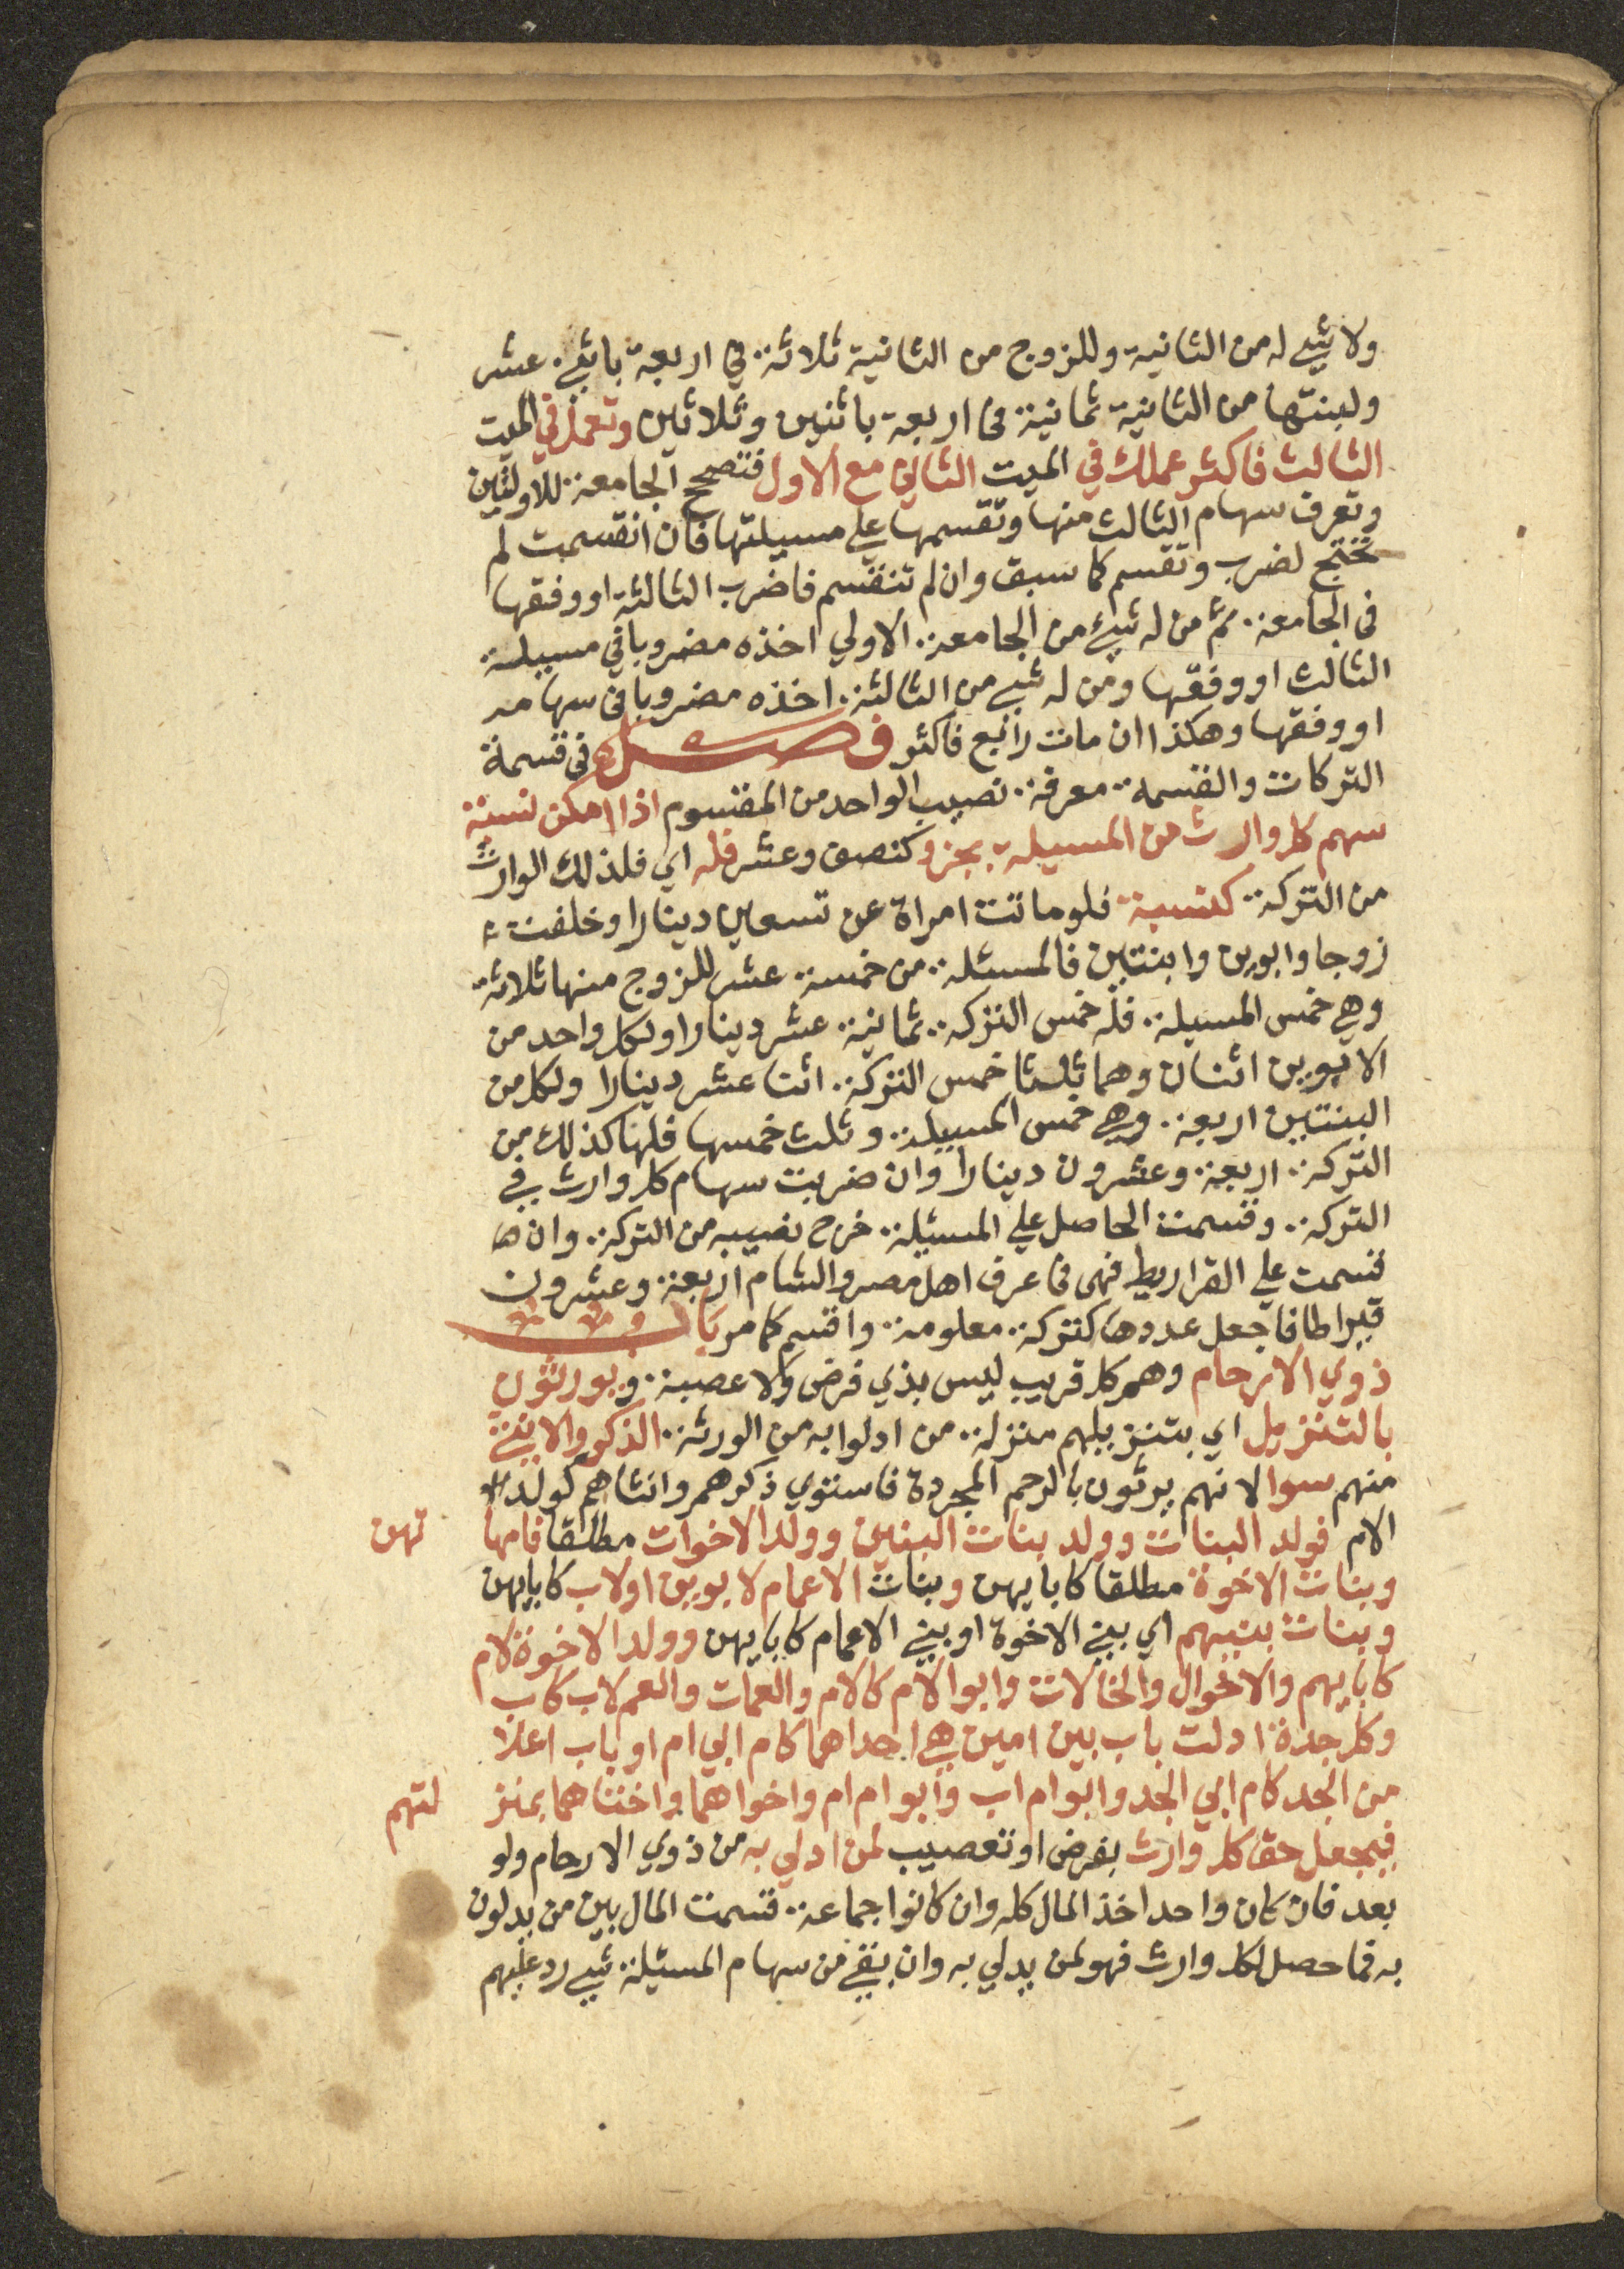 ولا شيء له من الثانية وللزوج من الثانية ثلاثة في اربعة باثني عشر
ولبنتها من الثانية ثمانية في اربعة باثنين وثلاثين وتعمل في الميت
الثالث فاكثر عملك في الميت الثاني مع الاول فتصحح الجامعة للاوليين
وتعرف سهام الثالث منها وتقسمها علي مسيلتها فان انقسمت لم
تحتج لضرب وتقسم كما سبق وان لم تنقسم فاضرب الثالثة او وفقها
في الجامعة ثم من له شيء من الجامعة الاولي اخذه مضروبا في مسيلة
الثالث او وفقها ومن له شيء من الثالثة اخذه مضروبا في سهامه
او وفقها وهكذا ان مات رابع فاكثر فصل في قسمة
التركات والقسمة معرفة نصيب الواحد من المقسوم اذا امكن نسبة
سهم كل وارث من المسيلة بجزو كنصف وعشر فله اي فلذلك الوارث
من التركة كنسبة فلو ماتت امراة عن تسعين دينارا وخلفت
زوجا وابوين وابنتين فالمسئلة من خمسة عشر للزوج منها ثلاثة
وهي خمس المسيلة فله خمس التركة ثمانية عشر دينارا ولكل واحد من
الابوين اثنان وهما ثلثا خمس التركة اثنا عشر دينارا ولكل من
البنتين اربعة وهي خمس المسيلة وثلث خمسها فلها كذلك من
التركة اربعة وعشرون دينارا وان ضربت سهام كل وارث في
التركة وقسمت الحاصل علي المسئلة خرج نصيبه من التركة وان
قسمت علي القراريط فهي في عرف اهل مصر والشام اربعة وعشرون
قيراطا فاجعل عددها كتركة معلومة واقسم كما مر باب
ذوي الارحام وهم كل قريب ليس بذي فرض ولا عصبة ويورثون
بالتنزيل اي بتنزيلهم منزلة من ادلوا به من الورثة الذكر والانثي
منهم سوا لانهم يرثون بالرحم المجردة فاستوي ذكرهم وانثاهم كولد
الام فولد البنات وولد بنات البنين وولد الاخوات مطلقا فامها تهن
وبنات الاخوة مطلقا كابايهن وبنات الاعمام لابوين اولاب كابايهن
وبنات بنيهم اي بني الاخوة او بني الاعمام كابايهن وولد الاخوة لام
كابايهم والاخوال والخالات وابو الام كالام والعمات والعم لاب كاب
وكل جدة ادلت باب بين امين هي احداهما كام ابي ام او باب اعلا
من الجد كام ابي الجد وابو ام اب وابو ام ام واخواهما واختاهما بمنز لتهم
فيجعل حق كل وارث بفرض او تعصيب لمن ادلي به من ذوي الارحام ولو
بعد فان كان واحدا اخذ المال كله وان كانوا جماعة قسمت المال بين من يدلون
به فما حصل لكل وارث فهو لمن يدلي به وان بقي من سهام المسئلة شيء رد عليهم